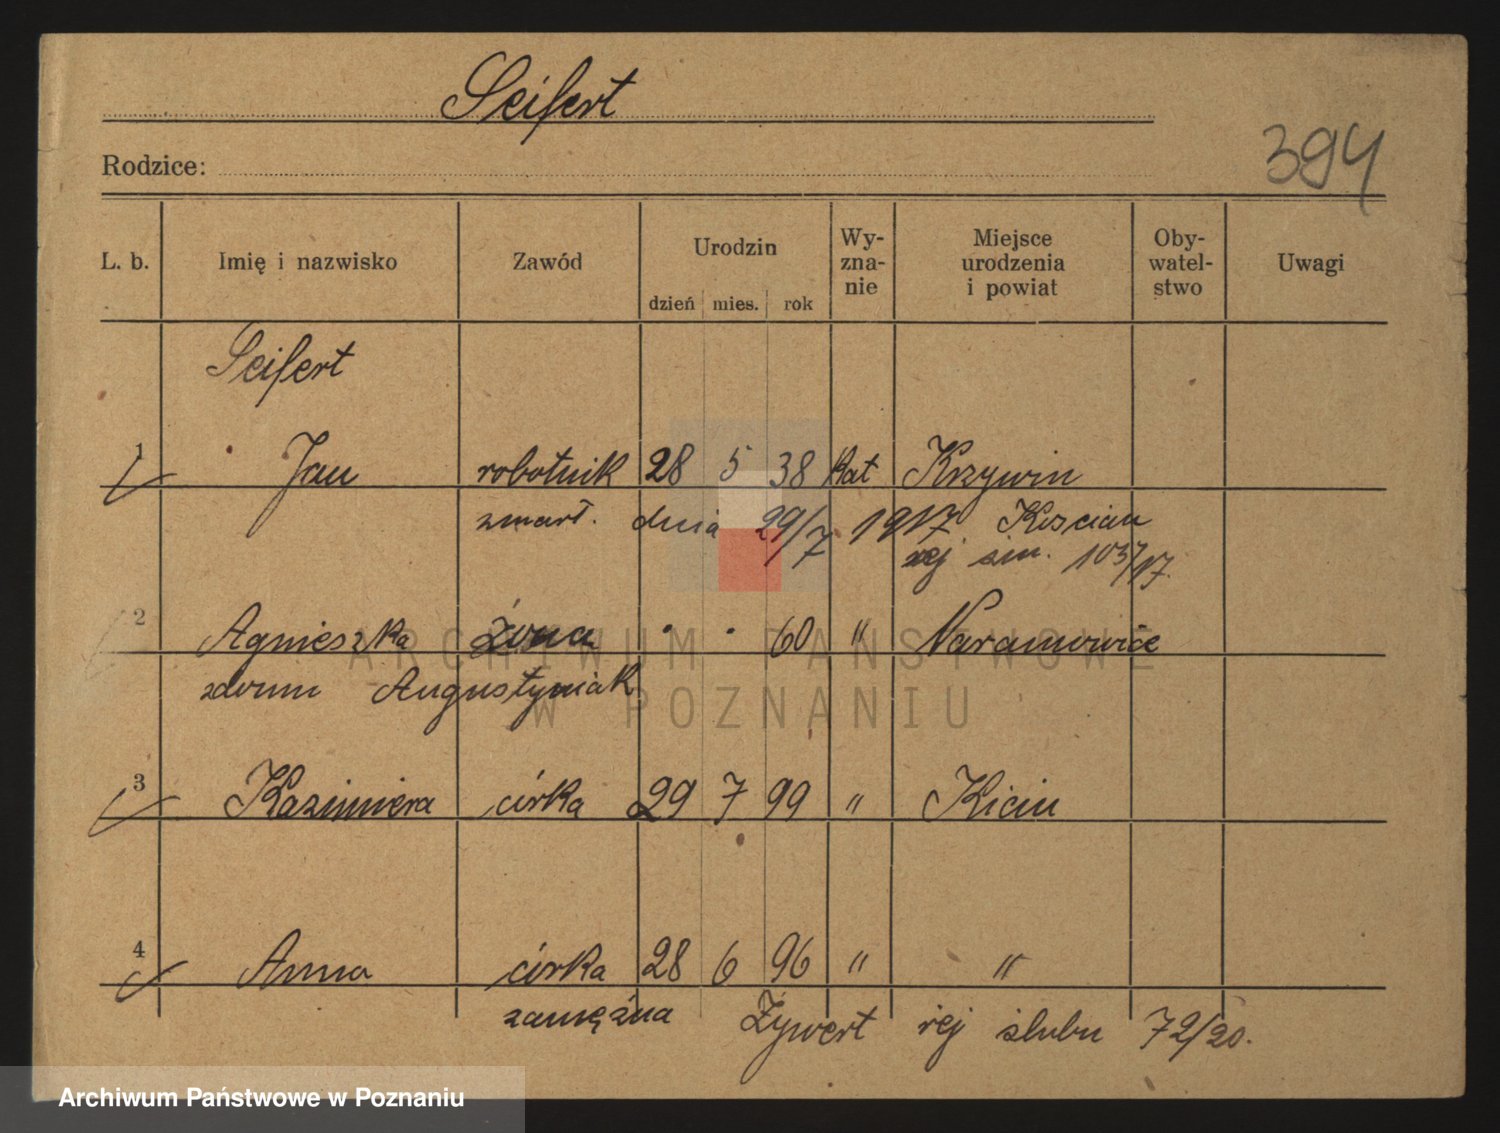 Seifert
Rodzice:
394
L. b. Imię i nazwisko Zawód Urodzin dzień mies. rok Wy-zna-nie Miejsce urodzenia i powiat Oby-watel-stwo Uwagi
Seifert
1 Jan robotnik 28 5 38 kat Krzywin
zmarł. dnia 29/7 1917 Kościan
rej sm. 1037/17.
2 Agnieszka żona . . 60 " Naramowice
zdomu Augustyniak
3 Kazimiera córka 29 7 99 " Kicin
4 Anna córka 28 6 96 " "
zamężna Żywert rej ślubu 72/20.
ARCHIWUM PAŃSTWOWE
W POZNANIU
Archiwum Państwowe w Poznaniu